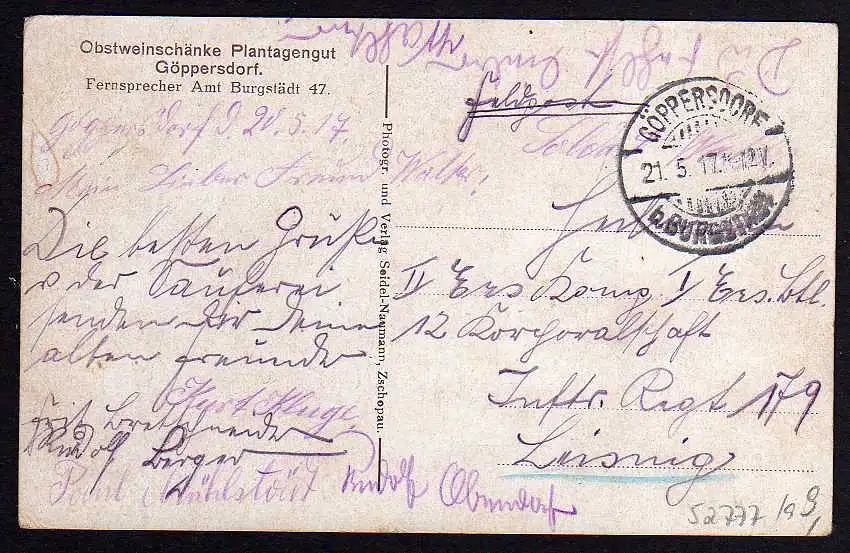 Obstweinschänke Plantagengut
Göppersdorf.
Fernsprecher Amt Burgstädt 47.
Göppersdorf d. 20.5.17.
Mein Lieber Freund Walter!
Die besten Grüße
v der Sauferei
senden dir deine
alten Freunde
Kurt Kluge
Fritz Bretschneider
Rudolf Berger
Paul Mühlstädt
Rudolf Obendorf
Photogr. und Verlag Seidel-Naumann, Zschopau.
Du fehlst
Feldpost
GÖPPERSDORF
21. 5. 17. 12V.
b. BURGSTÄDT
II Ers Komp. I Ers. Btl.
12 Korporalschaft
Inftr. Regt 179
Leisnig
52777